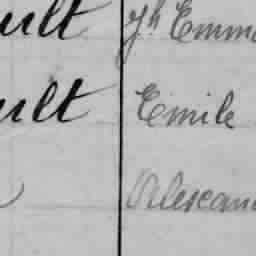 ult Jh Emma
ult Emile
Alexan